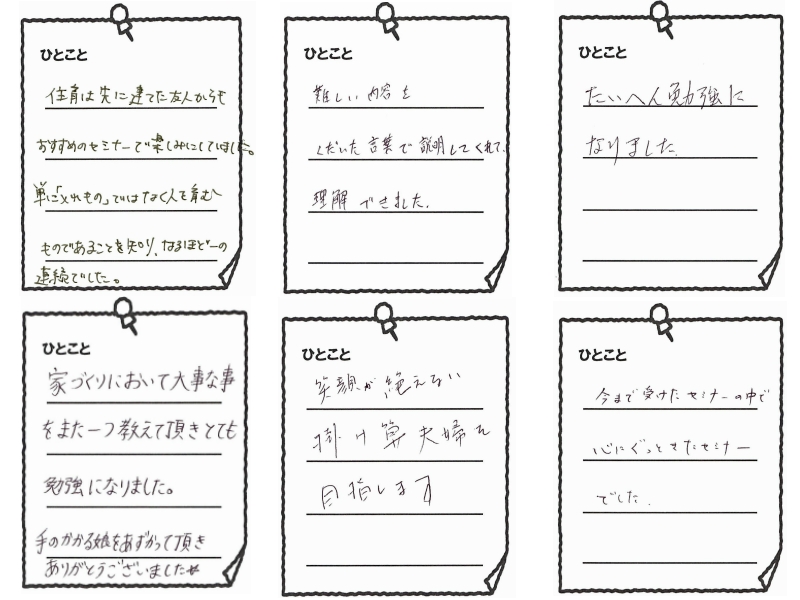 ひとこと
住育は先に建てた友人からも
おすすめのセミナーで楽しみにしていました。
単に「入れもの」ではなく人を育む
ものであることを知り、なるほどーの
連続でした。
ひとこと
難しい内容を
くだいた言葉で説明してくれて、
理解できました。
ひとこと
たいへん勉強に
なりました。
ひとこと
家づくりにおいて大事な事
をまた一つ教えて頂きとても
勉強になりました。
手のかかる娘をあずかって頂き
ありがとうございました
ひとこと
笑顔が絶えない
掛け算夫婦を
目指します
ひとこと
今まで受けたセミナーの中で
心にぐっときたセミナー
でした.